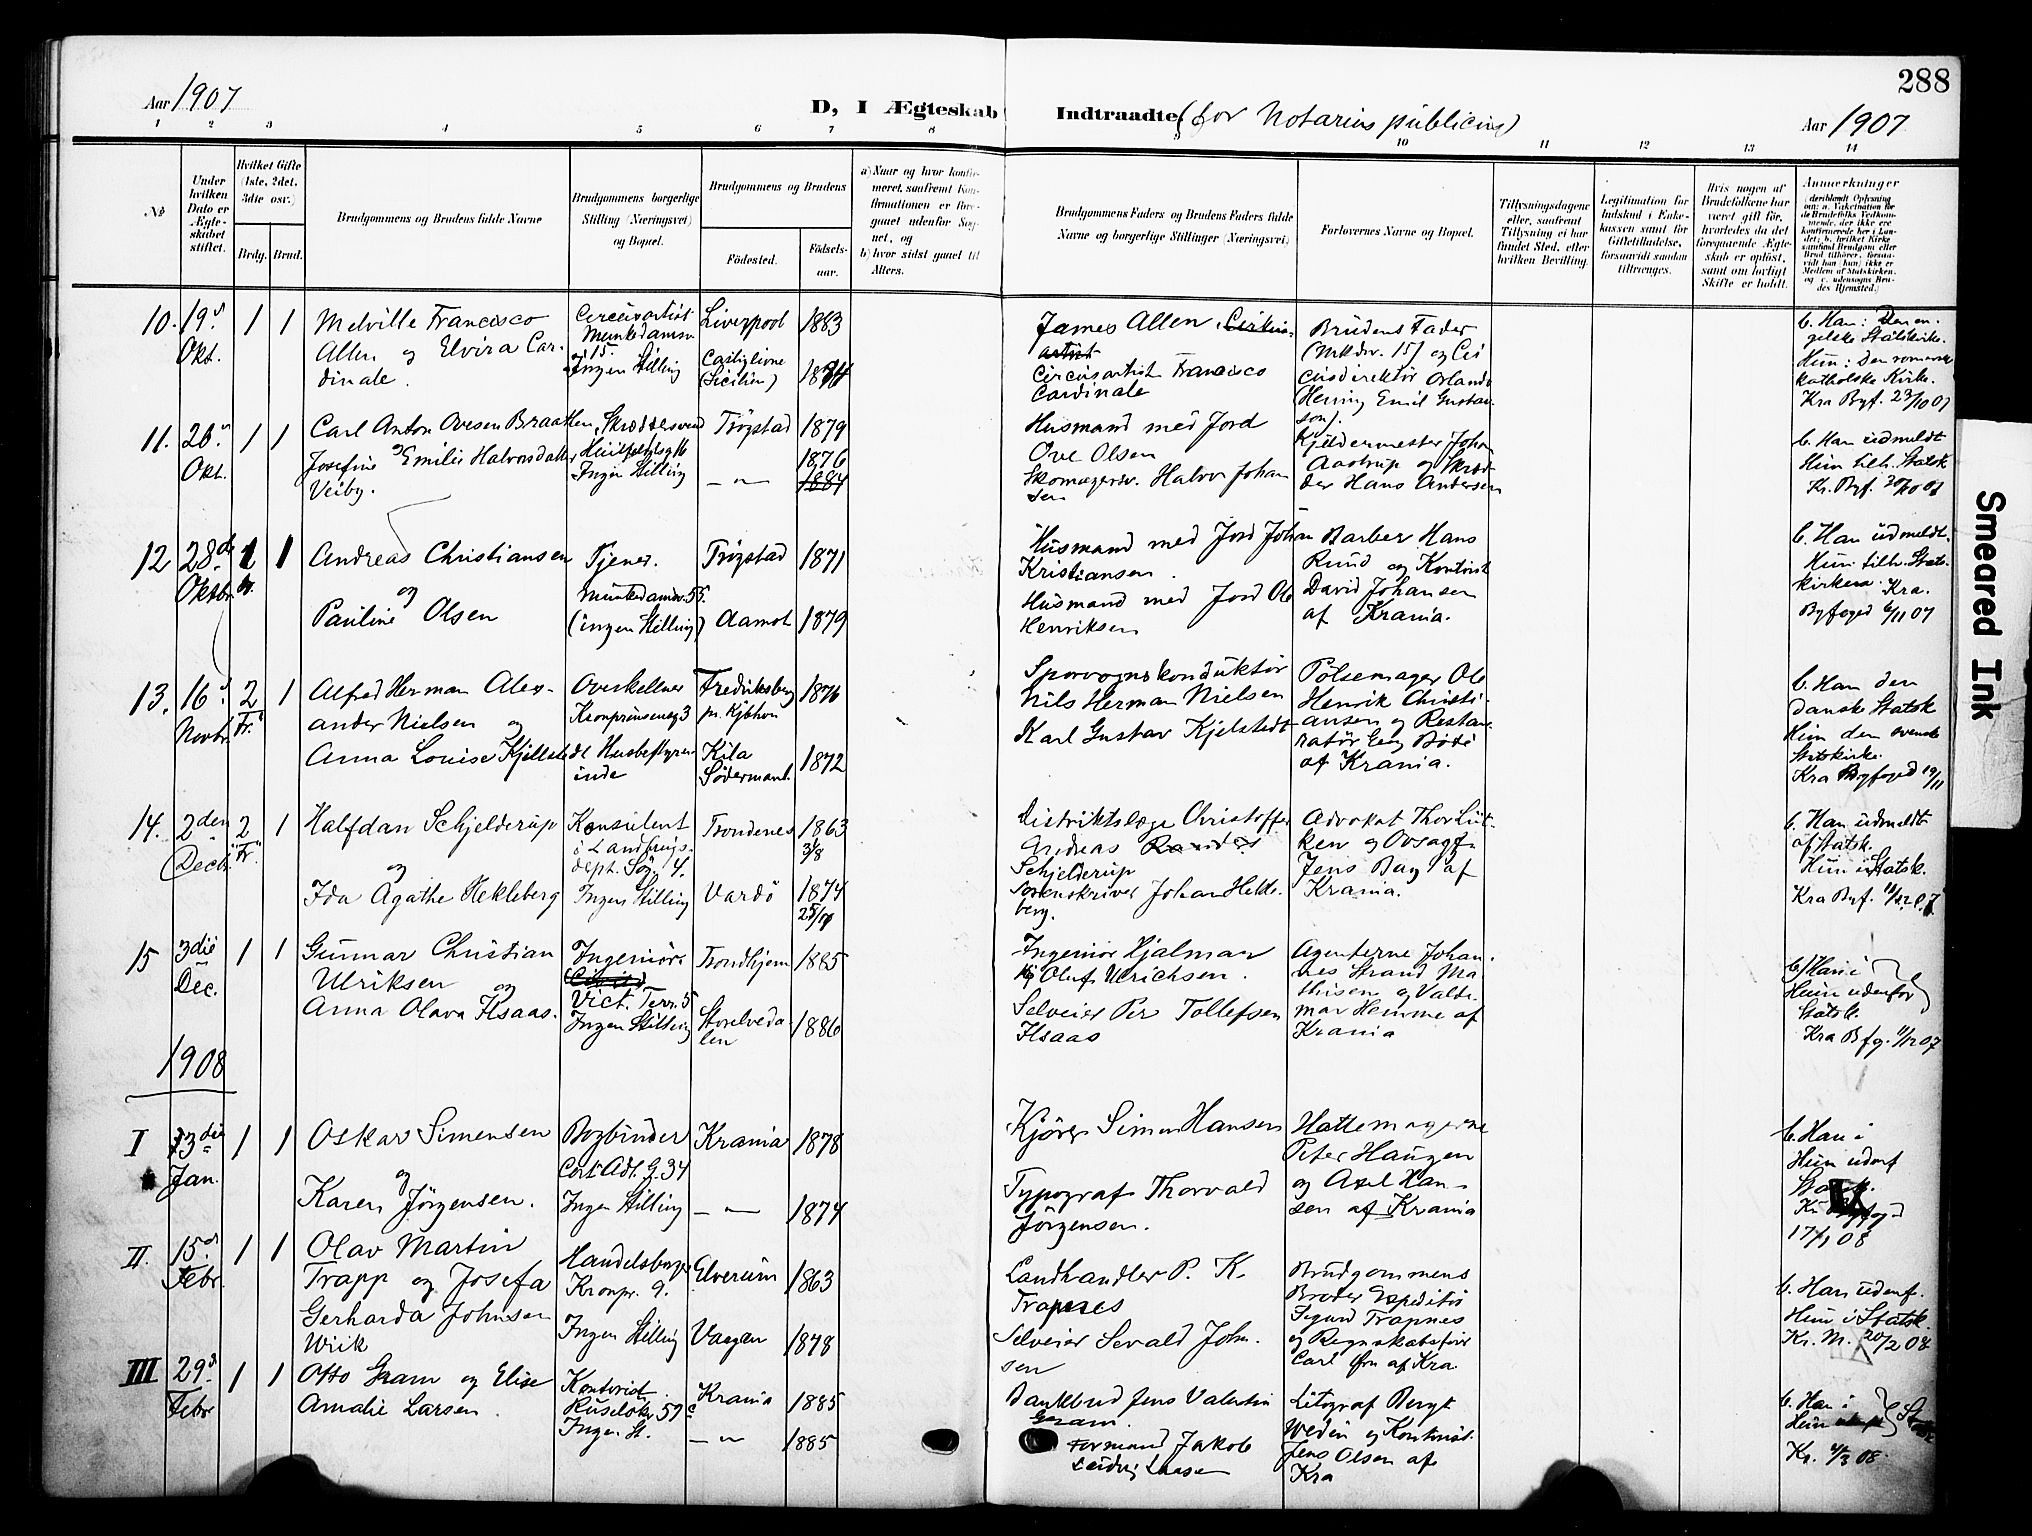 288
Aar 1907
D, I Ægteskab Indtraadte (for Notarius publicus)
Aar 1907
1 2 3 4 5 6 7 8 10 11 12 13 14
No
Under hvilken Dato er Ægteskabet stiftet.
Hvilket Gifte (1ste, 2det, 3die osv.)
Brdg. Brud.
Brudgommens og Brudens fulde Navne
Brudgommens borgerlige Stilling (Næringsvei) og Bopæl.
Brudgommens og Brudens
Födested.
Födsels-aar.
a) Naar og hvor konfirmeret, saafremt Konfirmationen er foregaaet udenfor Sognet, og
b) hvor sidst gaaet til Alters.
Brudgommens Faders og Brudens Faders fulde Navne og borgerlige Stillinger (Næringsvei)
Forlovernes Navne og Bopæl.
Tillysningsdagene eller, saafremt Tillysning ei har fundet Sted, efter hvilken Bevilling.
Legitimation for Indskud i Enkekassen samt for Giftetilladelse, forsaavidt saadan tiltrænges.
Hvis nogen af Brudefolkene har været gift för, hvorledes da det foregaaende Ægteskab er oplöst, samt om lovligt Skifte er holdt.
Anmærkninger
(deriblandt Oplysning om: a. Vakcination for de Brudefolks Vedkommende, der ikke ere konfirmerede her i Landet; b. hvilket Kirkesamfund Brudgom eller Brud tilhörer, forsaavidt han (hun) ikke er Medlem af Statskirken, og c. udensogns Brudes Hjemsted.)
10. 19d Okt. 1 1
Melville Francisco
Allen og Elvira Car-
dinale.
Circusartist
Munkedamsv.
15.
Ingen Stilling
Liverpool 1883
Castiglione
(Sicilien) 1874
James Allen, Cirkus-
artist
Circusartist Francisco
Cardinale
Brudens Fader
(Mkdv. 15) og Cir
cusdirektör Orlando
(Henning Emil Gustav
son).
b. Han: Den en-
gelske Statskirke.
Hun: Den romersk
katholske Kirke.
Kra Byf. 23/10 07
11. 26d Okt. 1 1
Carl Anton Ovesen Braathen
og
Josefine Emilie Halvorsdatter
Veiby.
Skræddersvend
Ingen Stilling
Trögstad 1879
— " — 1876
1884
Husmand med Jord
Ove Olsen
Skomagersv. Halvor Johan
sen
Kjeldermester Johan
Aastrup og Skræd
der Hans Andersen
b. Han udmeldt
Hun tilh. Statsk
Kr. Byf.
12 28de Oktbr. 1
Andreas Christiansen
og
Pauline Olsen
Tjener.
Munkedamsv. 55.
(ingen Stilling)
Trögstad 1871
Aamot 1879
Husmand med Jord Johan
Kristiansen.
Husmand med Jord Ole
Henriksen
Barber Hans
Rund og Kontorist
David Johansen
af Krania.
b. Han udmeldt.
Hun tilh. Stats-
kirken. Kra.
Byfoged 6/11 07
13. 16d Novbr. 2 Fr. 1
Alfred Herman Alex-
ander Nielsen og
Anna Louise Kjellstedt
Overkellner
Kronprinsensg 3
Husbestyrer-
inde
Fredriksberg
pr. Kjbhvn 1876
Kila
Södermanl. 1872
Sporvognskonduktör
Nils Herman Nielsen
Karl Gustav Kjelstedt
Pölsemager Ole
Henrik Christi-
ansen og Restau-
ratör
af Krania.
b. Han den
danske Statsk
Hun den svenske
Statskirke.
Kra Byfoged 19/11
14. 2den Decbr. 2 Fr. 1
Halfdan Schjelderup
og
Ida Agathe Hekleberg
Konsulent
i Landbrugs-
dept.
Ingen Stilling
Trondenes 1863
3/8
Vardö 1874
Distriktslæge Christoffer
Andreas Randers
Schjelderup
Sorenskriver Johan Hekle-
berg.
Advokat Thor Lüt-
ken og Ovsagf.
Jens Bay af
Krania.
b. Han udmeldt
af Statsk.
Hun i Statsk.
Kra Byf.
15 3die Dec. 1 1
Gunnar Christian
Ulriksen og
Anna Olava Ilsaas.
Ingeniör.
Vict. Terr. 5
Ingen Stilling
Trondhjem 1885
Storelveda
len 1886
Ingeniör Hjalmar
Oluf Ulrichsen.
Selveier Per Tollefsen
Ilsaas
Agenterne Johan-
nes Strand Ma-
thisen og Valde-
mar Hemme af
Krania
b) Han i
Hun udenfor
Statsk.
Kra Bfg. 11/12 07
1908
I 3die Jan. 1 1
Oskar Simensen
og
Karen Jörgensen.
Bogbinder
Cort Adl. G. 34
Ingen Stilling
Krania 1878
— " — 1874
Kjörer Simen Hansen
Typograf Thorvald
Jörgensen.
Hattemagerne
Peter Haugen
og Axel Han-
sen af Krania
b. Han i
Hun udenf
Statsk.
17/1 08
II. 15d Febr. 1 1
Olav Martin
Trapp og Josefa
Gerharda Johnsen
Wiik
Handelsborger
Kronpr. 9.
Ingen Stilling
Elverum 1863
Vaagan 1878
Landhandler P. K.
Trapnes
Selveier Sevald John-
sen
Brudgommens
Broder Expeditör
Sigurd Trapnes
og Regnskabsförer
Carl Örn af Kra.
b. Han udenf.
Hun i Statsk.
Kr. M. 20/2 08
III 29d Febr 1 1
Otto Gram og Elise
Amalie Larsen.
Kontorist
Ruselökv 59
Ingen St.
Krania 1885
— " — 1885
Bankbud Jens Valentin
Gram.
Formand Jakob
Ludvig Larsen
Litograf Bergt
Wedin og Kontorist
Jens Olsen af
Kra
b. Han i
Hun
Kr. 4/3 08
Smeared Ink